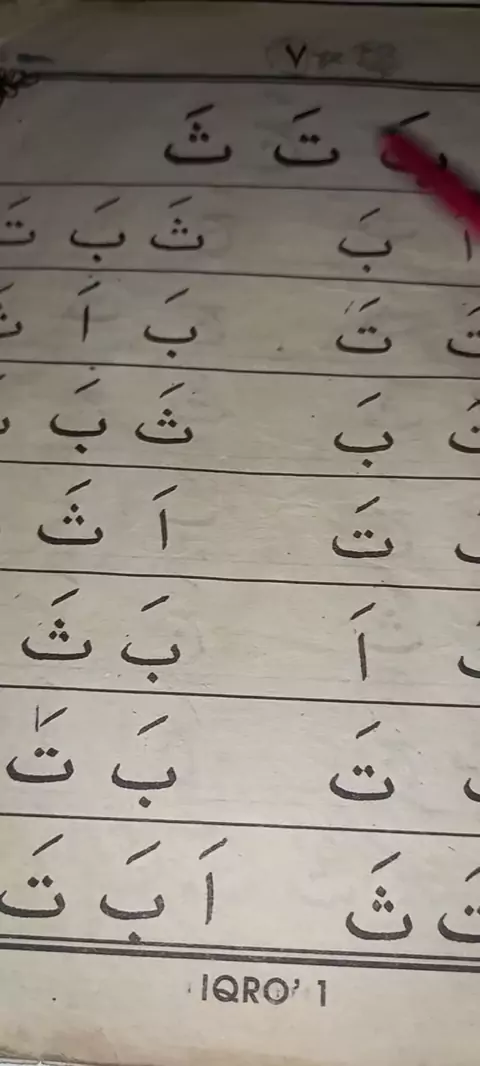 ٧
بَ تَ ثَ
اَ بَ ثَ بَ تَ
تَ تَ بَ اَ ثَ
بَ ثَ بَ
تَ اَ ثَ
اَ بَ ثَ
تَ بَ تَ
تَ ثَ اَ بَ تَ
IQRO' 1